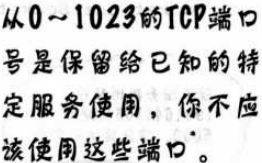 从0～1023的TCP端口
号是保留给已知的特
定服务使用，你不应
该使用这些端口。